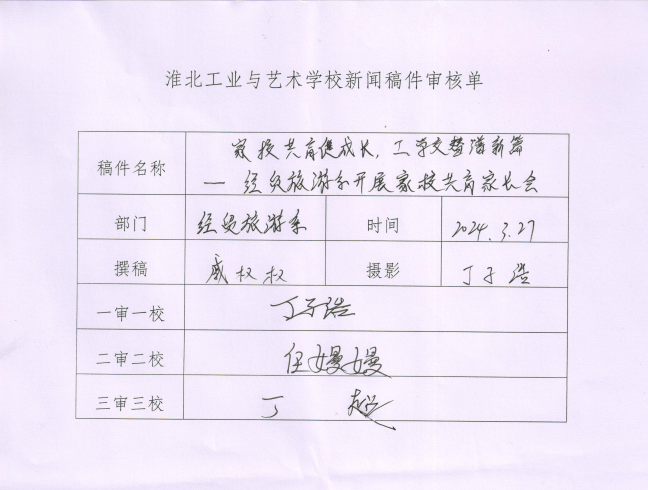 淮北工业与艺术学校新闻稿件审核单
稿件名称
家校共育促成长，工学交替谱新篇
— 经贸旅游系开展家校共育家长会
部门 经贸旅游系 时间 2024.3.27
撰稿 戚权权 摄影 丁子浩
一审一校 丁子浩
二审二校 任嫚嫚
三审三校 丁